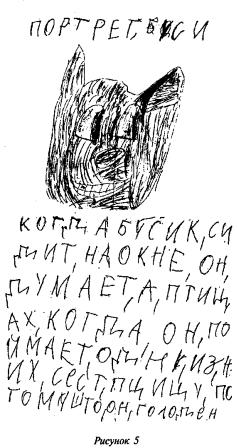 ПОРТРЕТ, БУСИ
КОГДА БУСИК, СИ
ДИТ, НА ОКНЕ, ОН,
ДУМАЕТ, А, ПТИЦ
АХ, КОГДА, ОН, ПО
ЙМАЕТ, ОДНУ, ИЗ, Н
ИХ, СЕСТ, ПЦИЦУ, ПО
ТОМУШТО, ОН, ГОЛОДЕН
Рисунок 5